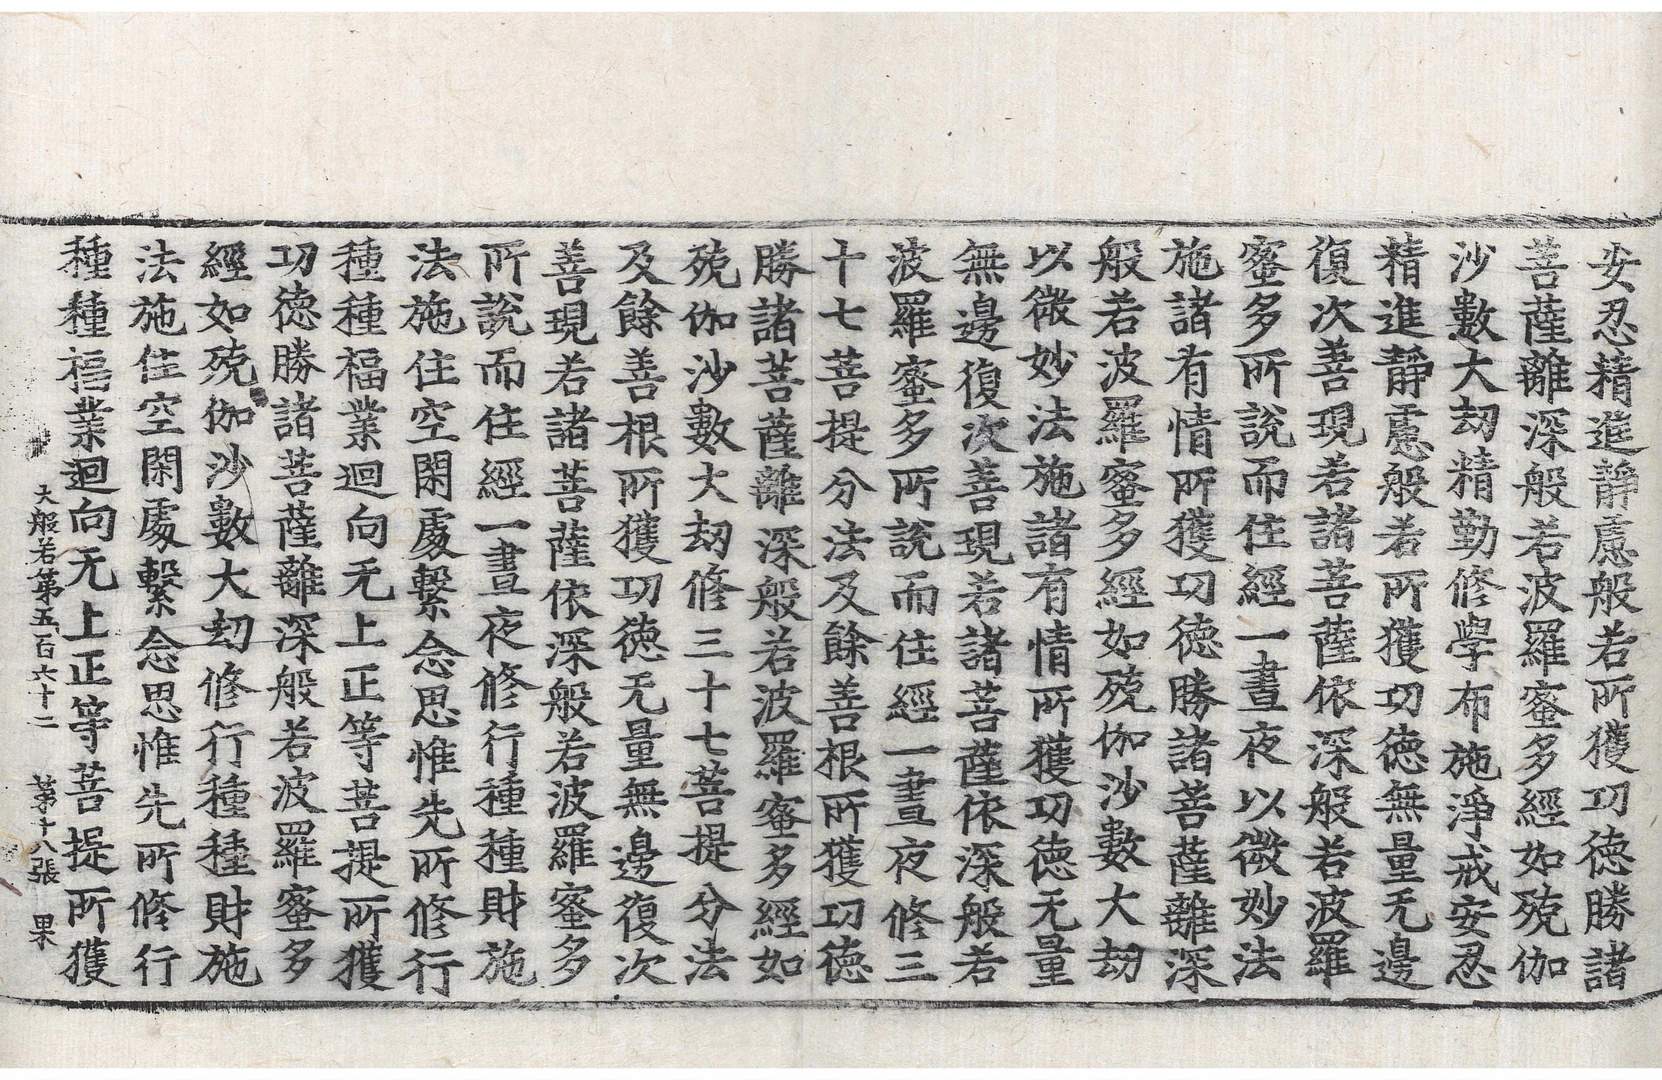 安忍精進靜慮般若所獲功德勝諸
菩薩離深般若波羅蜜多經如殑伽
沙數大劫精勤修學布施淨戒安忍
精進靜慮般若所獲功德無量无邊
復次善現若諸菩薩依深般若波羅
蜜多所說而住經一晝夜以微妙法
施諸有情所獲功德勝諸菩薩離深
般若波羅蜜多經如殑伽沙數大劫
以微妙法施諸有情所獲功德无量
無邊復次善現若諸菩薩依深般若
波羅蜜多所說而住經一晝夜修三
十七菩提分法及餘善根所獲功德
勝諸菩薩離深般若波羅蜜多經如
殑伽沙數大劫修三十七菩提分法
及餘善根所獲功德无量無邊復次
善現若諸菩薩依深般若波羅蜜多
所說而住經一晝夜修行種種財施
法施住空閑處繫念思惟先所修行
種種福業迴向无上正等菩提所獲
功德勝諸菩薩離深般若波羅蜜多
經如殑伽沙數大劫修行種種財施
法施住空閑處繫念思惟先所修行
種種福業迴向无上正等菩提所獲
大般若第五百六十二 第十八張 果